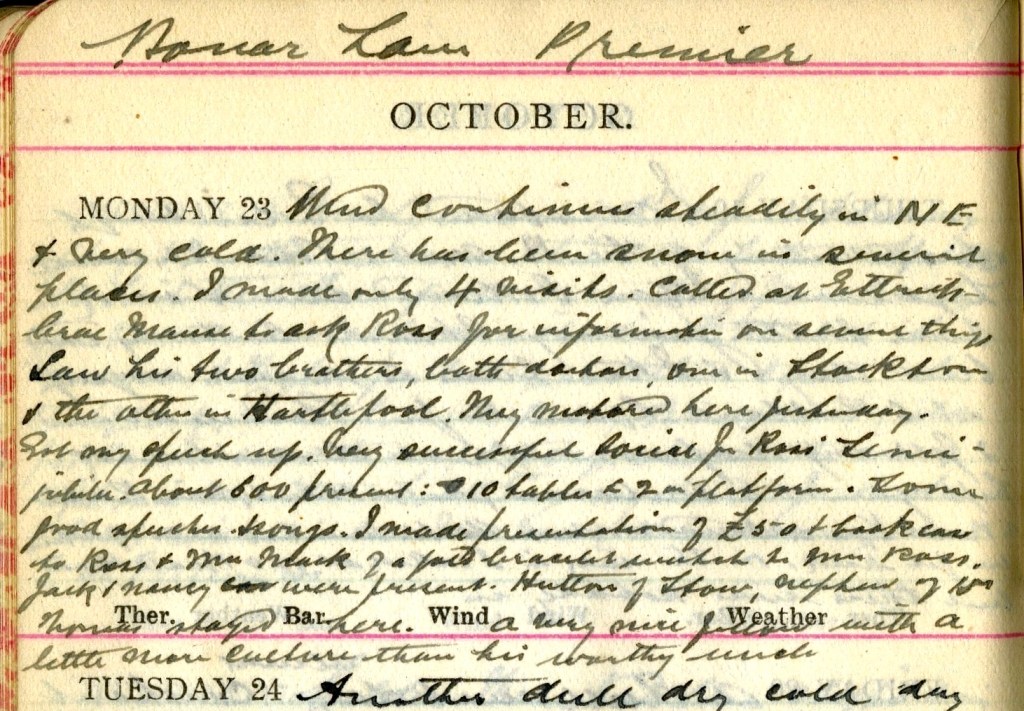 Bonar Law Premier
OCTOBER.
MONDAY 23 Wind continues steadily in NE
& very cold. There has been snow in several
places. I made only 4 visits. Called at Ettrick-
brae Manse to ask Ross for information on several things
Saw his two brothers, both doctors, one in Stockton
& the other in Hartlepool. They motored here yesterday.
Got my speech up. Very successful Social for Ross' Semi-
jubilee. About 600 present: 10 tables & 2 on platform. Some
good speeches & songs. I made presentation of £50 & bookcase
to Ross & Mrs Mack of a gold bracelet watch to Mrs Ross.
Jack & Nancy were present. Hutton of Stow, nephew of
Thomas stayed here. a very nice fellow with a
Ther. Bar. Wind Weather
little more culture than his worthy uncle
TUESDAY 24 Another dull dry cold day